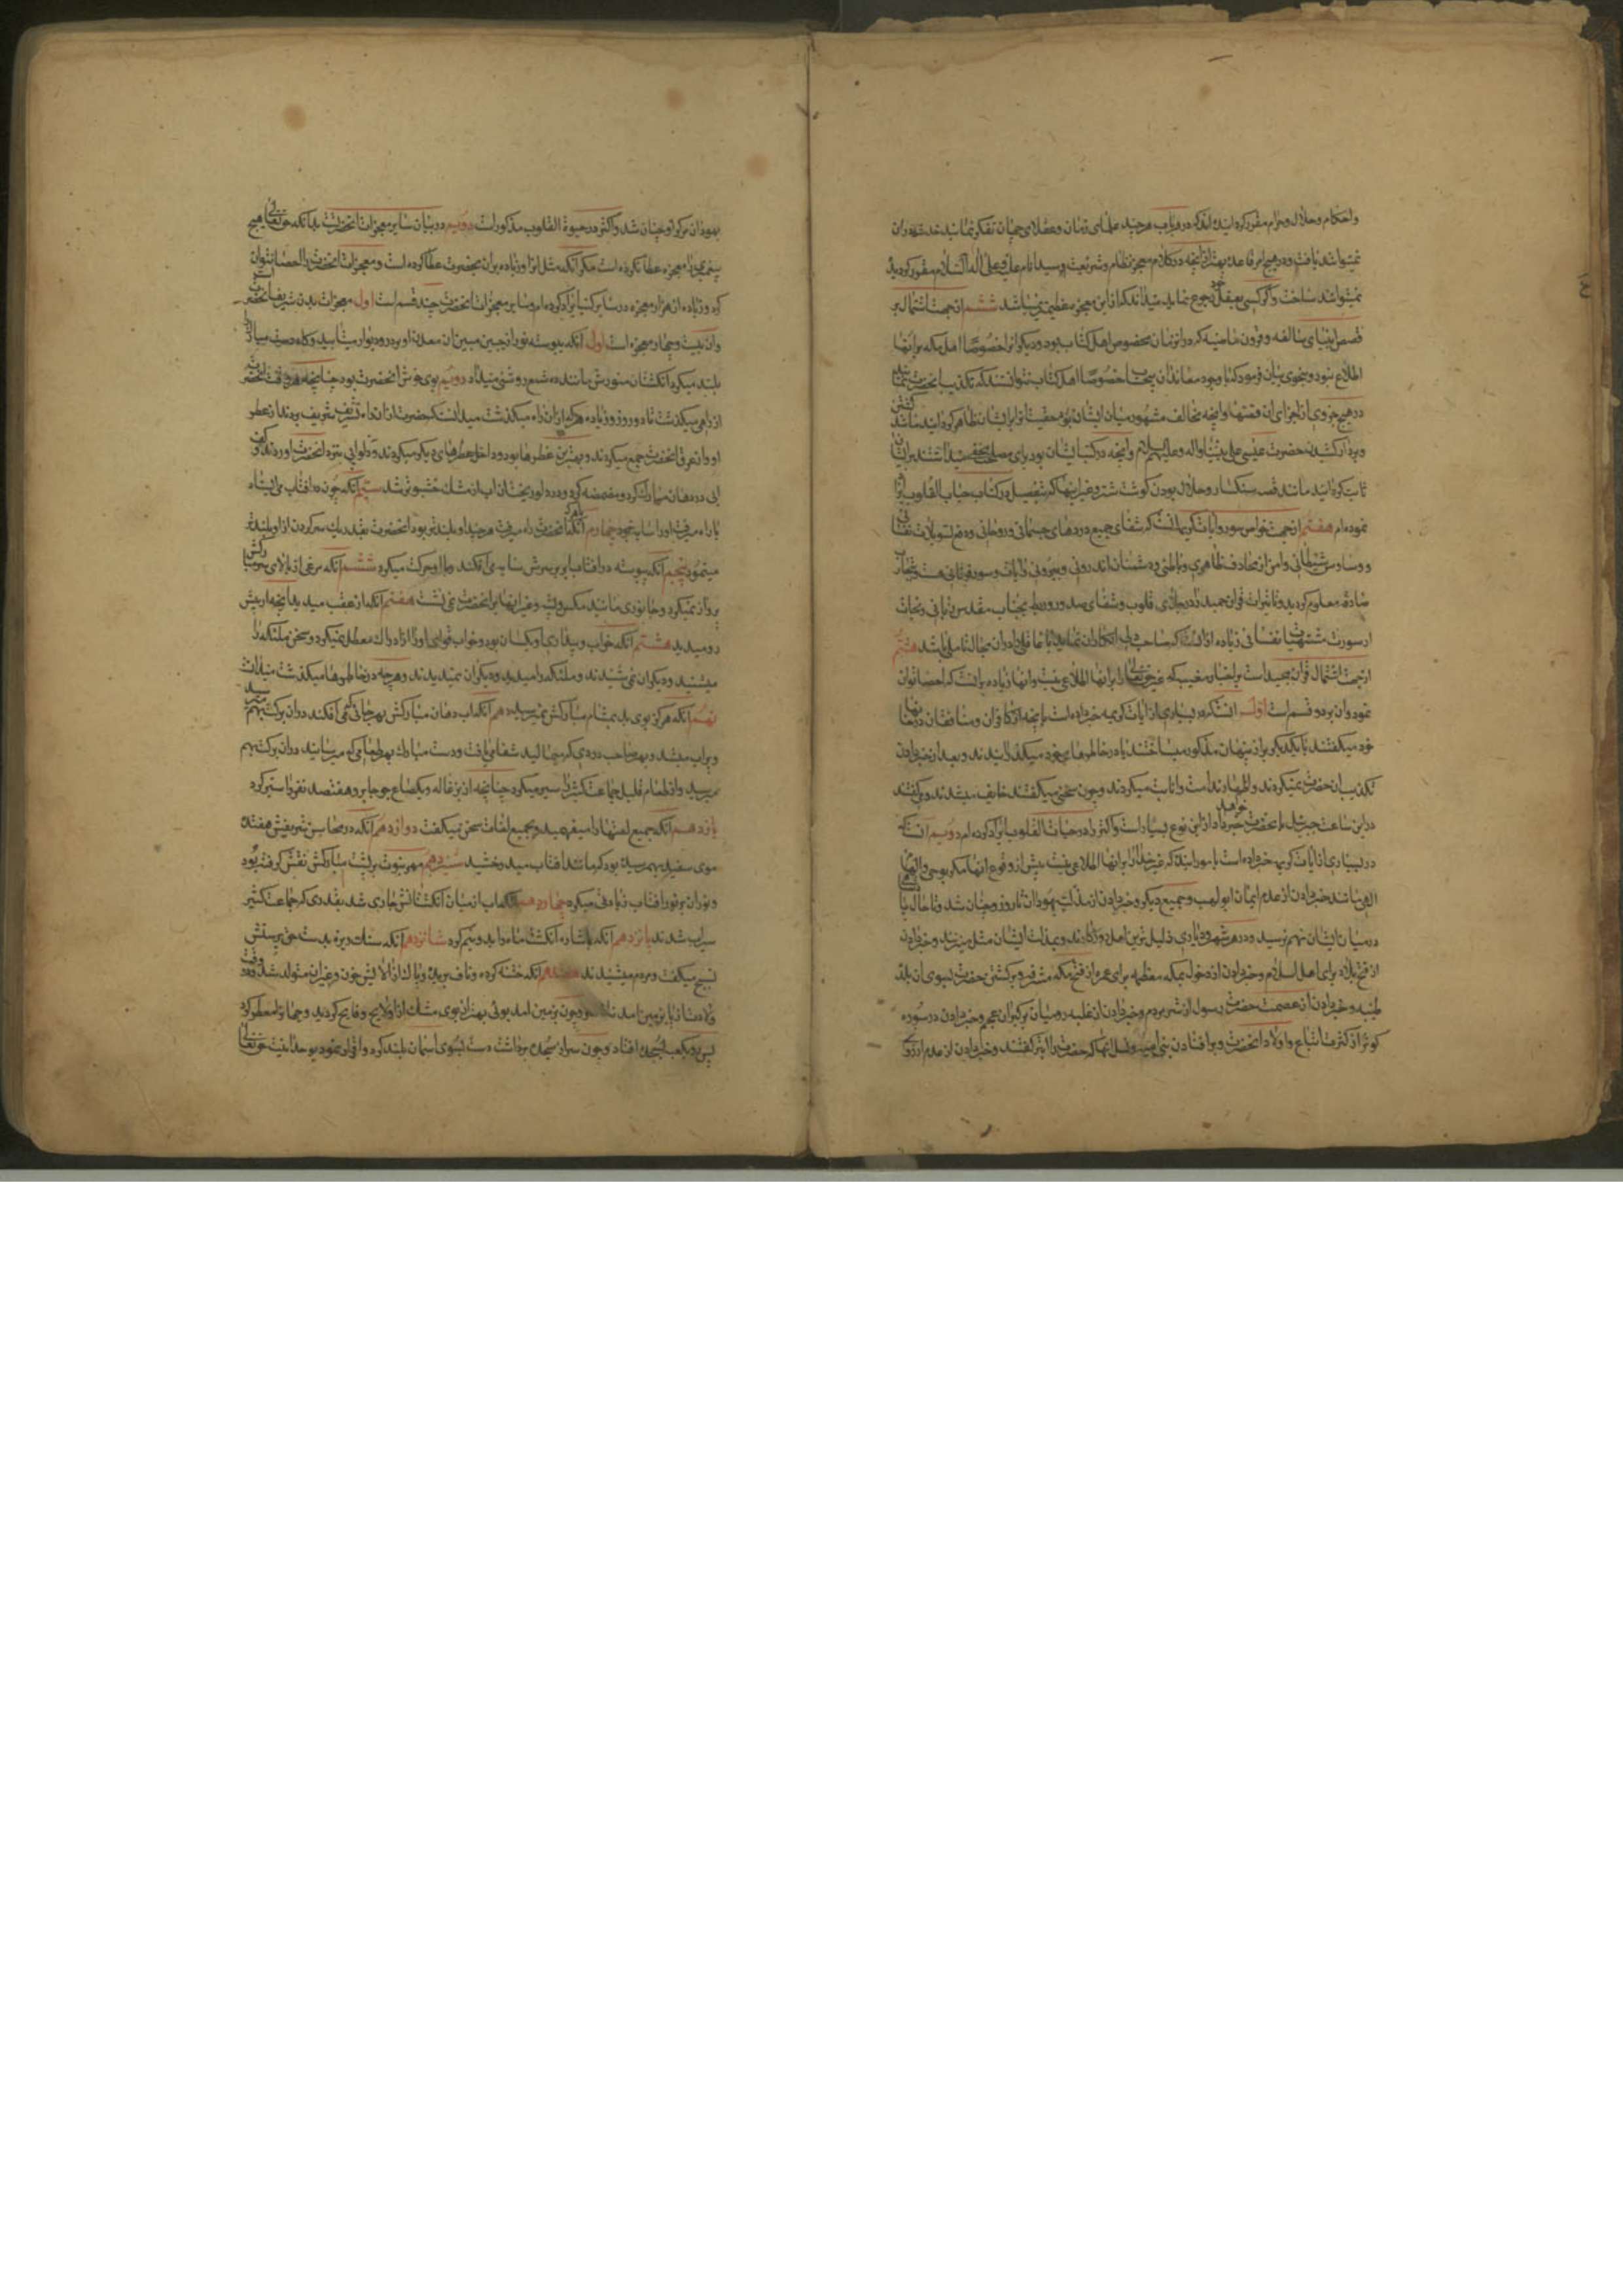 واحکام وحلال وحرام مقرر کرده اند که در هر باب هرچند علمای زمان وعقلای جهان تفکر نمایند خدشه دران
نمیتوانند یافت ودر هیچ امر قاعده بهتر از آنچه در کلام معجز نظام وشریعت سید انام علیه وعلی اله السلام مقرر کردیده
نمیتوانند ساخت واکر کسی بعقل خود رجوع نماید میداند که ازین معجزه عظیمتر نمیباشد ششم از جهت اشتمال بر
قصص انبیای سالفه وقرون ماضیه که در انزمان مخصوص اهل کتاب بود ودیکرانرا خصوصا اهل مکه بر انها
اطلاع نبود وبنحوی بیان فرمود که با وجود معاندان بیحساب خصوصا اهل کتاب نتوانستند که تکذیب انحضرت نمایند
در هیچ جزوی از اجزای ان قصتها وانچه مخالف مشهور میان ایشان بود حقیت انرا بر ایشان ظاهر کردانید مانند کشتن
وبردار کشیدن حضرت عیسی علی نبینا واله وعلیه السلام وانچه در کتب ایشان بود برای مصلحتی مخفی میداشتند بر ایشان
ثابت کردانید مانند قصه سنکسار وحلال بودن کوشت شتر وغیر اینها که بتفصیل در کتاب حیات القلوب ایراد
نموده ام هفتم از جهت خواص سور وایات کریمه انست که شفای جمیع دردهای جسمانی وروحانی ودفع تسویلات نفسانی
ووساوس شیطانی وامن از مخاوف ظاهری وباطنی ودشمنان اندرونی وبیرونی در ایات وسور قرانی هست وبتجارب
صادقه معلوم کردیده وتاثیرات قران مجید در جلای قلوب وشفای صدور وربط بجناب مقدس ربانی ونجات
از سورت مشتهیات نفسانی زیاده از انست که صاحب دلی انکار ان نماید یا عاقلی را در ان مجال تامل باشد هشتم
از جهت اشتمال قران مجید است بر اخبار مغیبه که غیر حق تعالی را بر انها اطلاعی نیست وانها زیاده بر انست که احصا توان
نمود وان بر دو قسم است اول انست که در بسیاری از ایات کریمه خبر داده است بانچه کافران ومنافقان در خانها
خود میکفتند یا با یکدیکر براز پنهان مذکور میساختند یا در خاطرهای خود میکذرانیدند وبعد از خبر دادن
تکذیب ان حضرت نمیکردند واظهار ندامت وانابت میکردند وچون سخنی میکفتند خایف میشدند ومیکفتند
در این ساعت جبرئیل انحضرت را خبر خواهد داد از این نوع بسیار است واکثر را در حیات القلوب ایراد کرده ام دویم انست که
در بسیاری از ایات کریمه خبر داده است بامور اینده که غیر خدا را بر انها اطلاعی نیست پیش از وقوع انها مکر بوحی والهام
الهی مانند خبر دادن از عدم ایمان ابو لهب وجمعی دیکر وخبر دادن از مذلت یهودان تا روز وچنان شد وتا حال پادشاهی
در میان ایشان بهم نرسید ودر هر شهر ودیاری ذلیل ترین اهل روزکارند وبمذلت ایشان مثل میزنند وخبر دادن
از فتح بلاد برای اهل اسلام وخبر دادن از دخول بمکه معظمه برای عمره از فتح مکه مشرفه وبرکشتن حضرت نبوی ان بلده
طیبه وخبر دادن از عصمت حضرت رسول از شر مردم وخبر دادن از غلبه رومیان بر کبران عجم وخبر دادن در سوره
کوثر از کثرت اتباع واولاد انحضرت وبر افتادن بنی امیه ونسل انها که حضرت را ابتر کفتند وخبر دادن از عدم ارزوی
یهودان مرک را وچنان شد واکثر در حیوة القلوب مذکور است دویم در بیان سایر معجزات انحضرتست بدانکه حق تعالی هیچ
پیغمبری را معجزه عطا نکرده است مکر انکه مثل انرا وزیاده بران بحضرت عطا کرده است ومعجزات انحضرت را احصا نتوان
کرد وزیاده از هزار معجزه در سایر کتب ایراد کرده ام وسایر معجزات انحضرت چند قسم است اول معجزات بدن شریف انحضرت است
وان بیست وچهار معجزه است اول انکه پیوسته نور از جبین مبین ان معدن انوار بر در ودیوار میتابید وکاه دست مبارک را
بلند میکرد انکشتان منورش مانند ده شمع روشنی میداد دویم بوی خوش انحضرت بود چنانچه هر وقت انحضرت
از راهی میکذشت تا دو روز وزیاده هر که از ان راه میکذشت میدانست که حضرت از ان راه تشریف بردند از عطر
او وان عرق انحضرت جمع میکردند وبهترین عطرها بود وداخل عطرهای دیکر میکردند ودلوابی بنزد انحضرت اوردند کفی
ابی در دهان مبارک کرد ومضمضه کرد ودر دلو ریخت ان اب از مشک خوشبوتر شد سیم انکه چون در افتاب می ایستاد
یا راه میرفت او را سایه نبود چهارم انکه با هر که انحضرت راه میرفت هرچند او بلندتر بود انحضرت بقدر یک سر کردن از او بلندتر
مینمود پنجم انکه پیوسته در افتاب ابر بر سرش سایه می افکند وبا او حرکت میکرد ششم انکه مرغی از بالای سر مبارکش
پرواز نمیکرد وجانوری مانند مکس وپشه وغیر اینها بر انحضرت نمی نشست هفتم انکه از عقب میدید انچه از پیش
رو میدید هشتم انکه خواب وبیداری او یکسان بود وخواب قوای او را از ادراک معطل نمیکرد وسخن ملئکه را
میشنید ودیکران نمی شنیدند وملئکه را میدید ودیکران نمیدیدند وهرچه در خاطرها میکذشت میدانست
نهم انکه هرکز بوی بد بمشام مبارکش نمیرسید دهم انکه اب دهان مبارکش بهر چاهی که می افکند دران برکت بهم میرسید
وپر اب میشد وبهر صاحب دردی که میمالید شفا می یافت ودست مبارک بهر طعامی که میرسانید دران برکت بهم
میرسید واز طعام قلیل جماعت کثیر را سیر میکرد چنانچه از بزغاله ویکصاع جو جابر وهفتصد نفر را سیر کرد
یازدهم انکه جمیع لغتها را میفهمید وبجمیع لغات سخن میکفت دوازدهم انکه در محاسن شریفش هفده
موی سفید بهم رسیده بود که مانند افتاب میدرخشید سیزدهم مهر نبوت بر پشت مبارکش نقش کرفته بود
ونور ان بر نور افتاب زیادتی میکرد چهاردهم انکه اب از میان انکشتانش جاری شد بقدری که جماعت کثیر
سیراب شدند پانزدهم انکه باشاره انکشت ماه را بدو نیم کرد شانزدهم انکه سنک ریزه بدست حق پرستش
تسبیح میکفت ومردم میشنیدند هفدهم انکه ختنه کرده وناف بریده وپاک از الایش خون وغیر ان متولد شد ودر وقت
ولادت از پا بزمین امد وچون بزمین امد بوئی بهتر از بوی مشک از او لایح وفایح کردید وجهانرا معطر کرد
پس رو بکعبه بسجده افتاد وچون سر از سجده برداشت دست بسوی اسمان بلند کرد واقرار نمود بوحدانیت حق تعالی